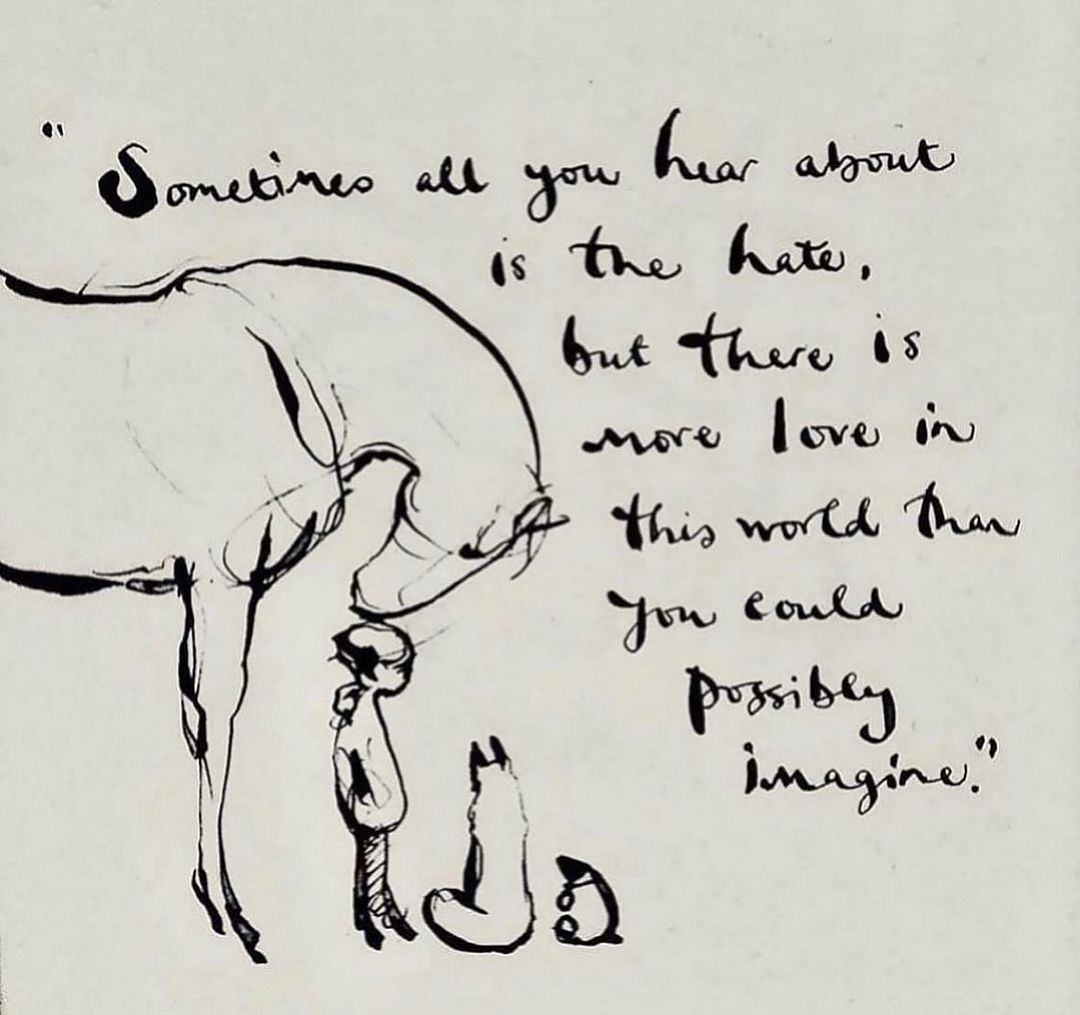 "Sometimes all you hear about
is the hate,
but there is
more love in
this world than
you could
possibly
imagine."